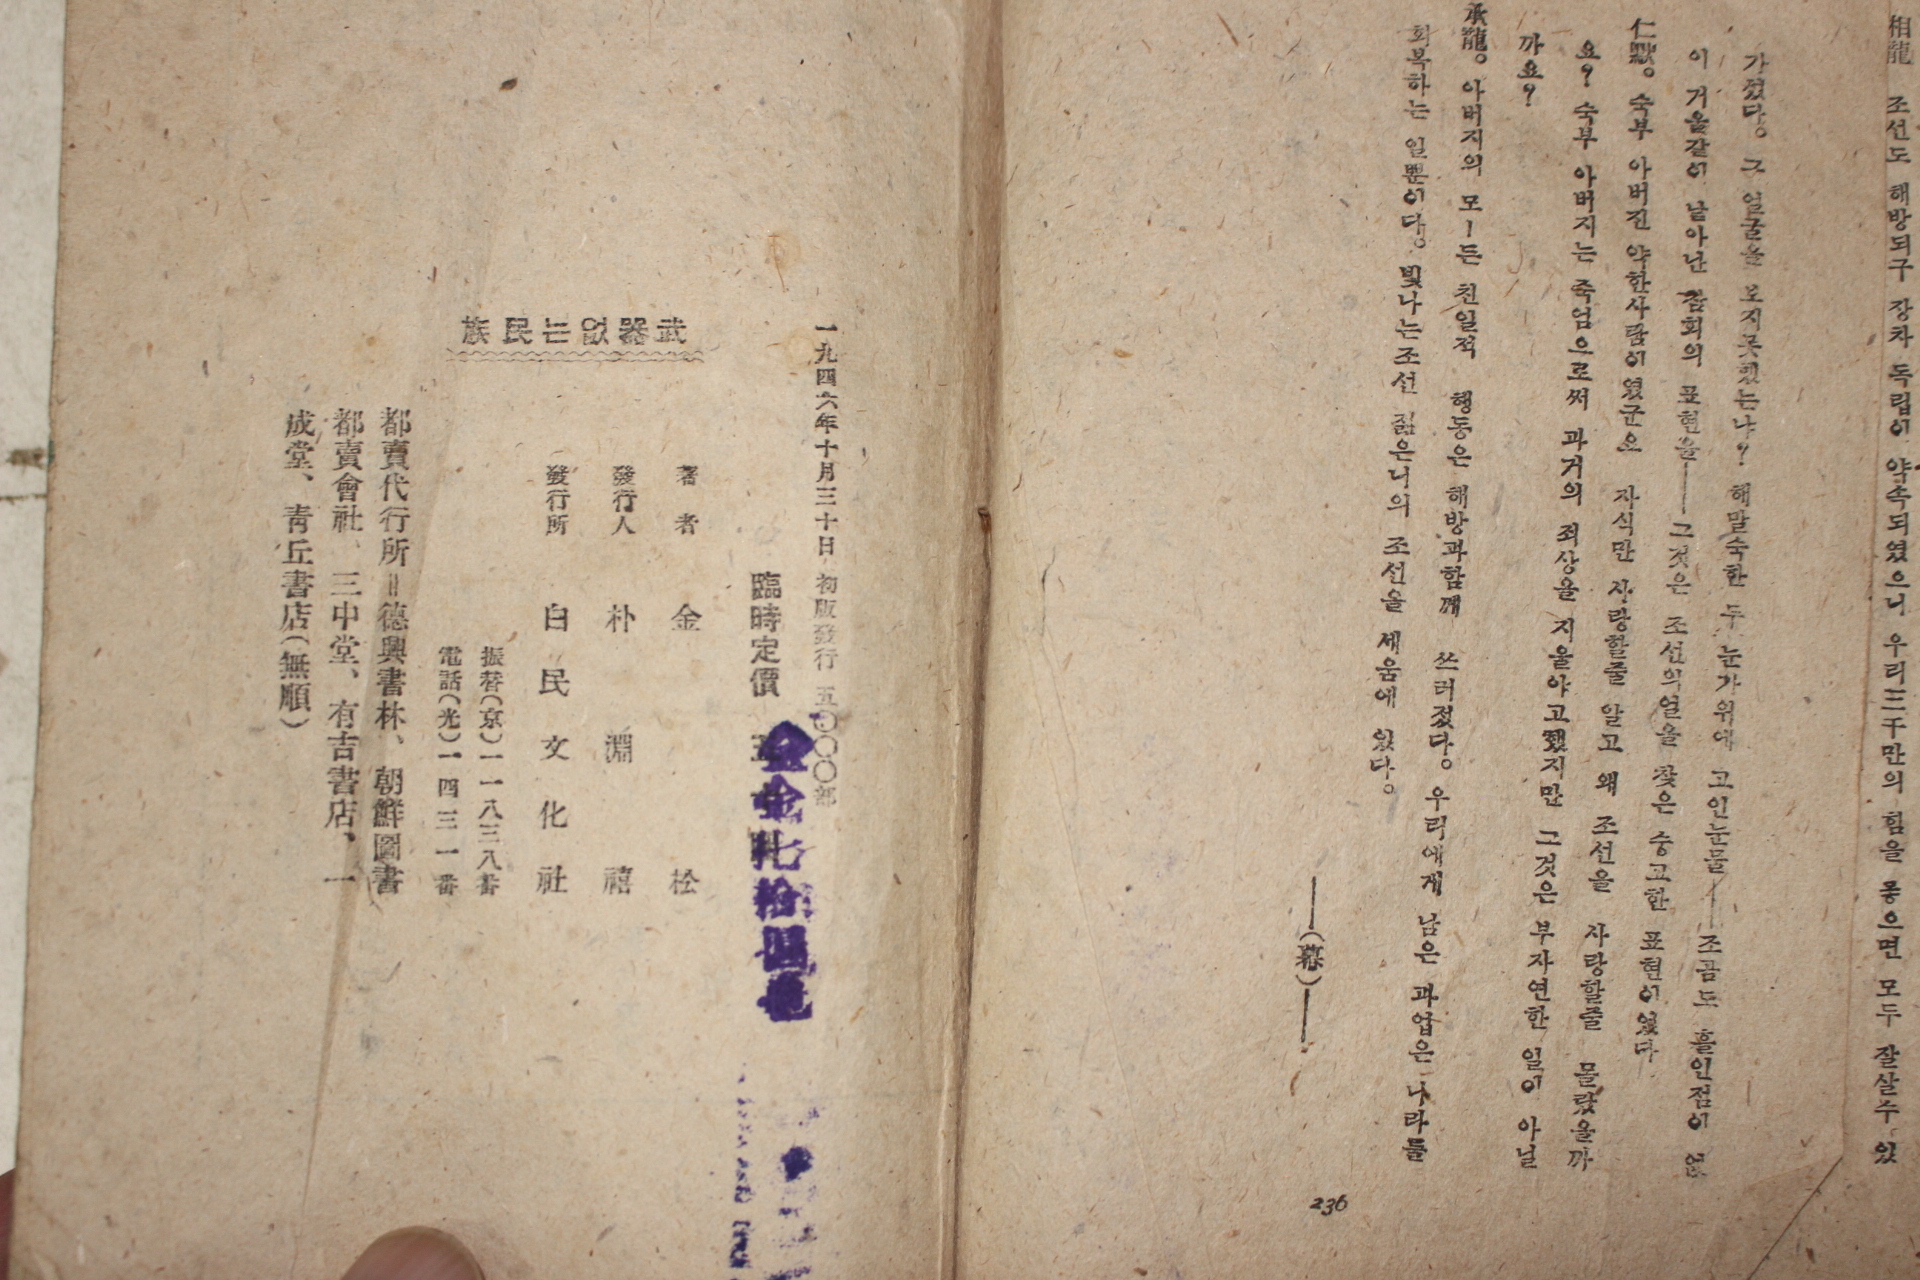 相龍 조선도 해방되구 장차 독립이 약속되였으니 우리三千만의 힘을 몽으면 모두 잘살수 있
가젔다。 그 얼굴을 보지못했는냐? 해말숙한 두눈가위에 고인눈물――조곰도 흘인점이 없
이 거울같이 날아난 참회의 표현을――그것은 조선의얼을 찾은 숭고한 표현이였다
仁默。 숙부 아버진 약한사람이였군요 자식만 사랑할줄 알고 왜 조선을 사랑할줄 몰랐을까
요? 숙부 아버지는 죽엄으로써 과거의 죄상을 지울야고했지만 그것은 부자연한 일이 아닐
까요?
承龍。 아버지의 모ㅣ든 친일적 행동은 해방과함께 쓰러젔다。 우리에게 남은 과업은 나라를
회복하는 일뿐이다。 빛나는조선 젊은니의 조선을 세움에 있다。
――(幕)――
236
一九四六年十月三十日 初版發行 五〇〇〇部
臨時定價
武器없는民族
著者 金松
發行人 朴淵禧
發行所 白民文化社
振替(京)一一八三八番
電話(光)一四三一番
都賣代行所=德興書林、朝鮮圖書
都賣會社、三中堂、有吉書店、一
成堂、靑丘書店(無順)